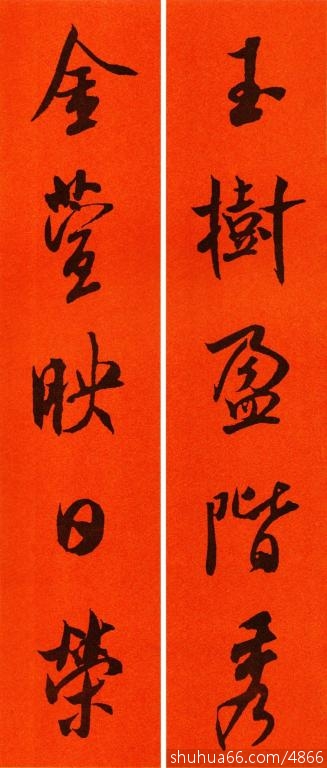 玉樹盈階秀
金萱映日榮
shuhua66.com/4866